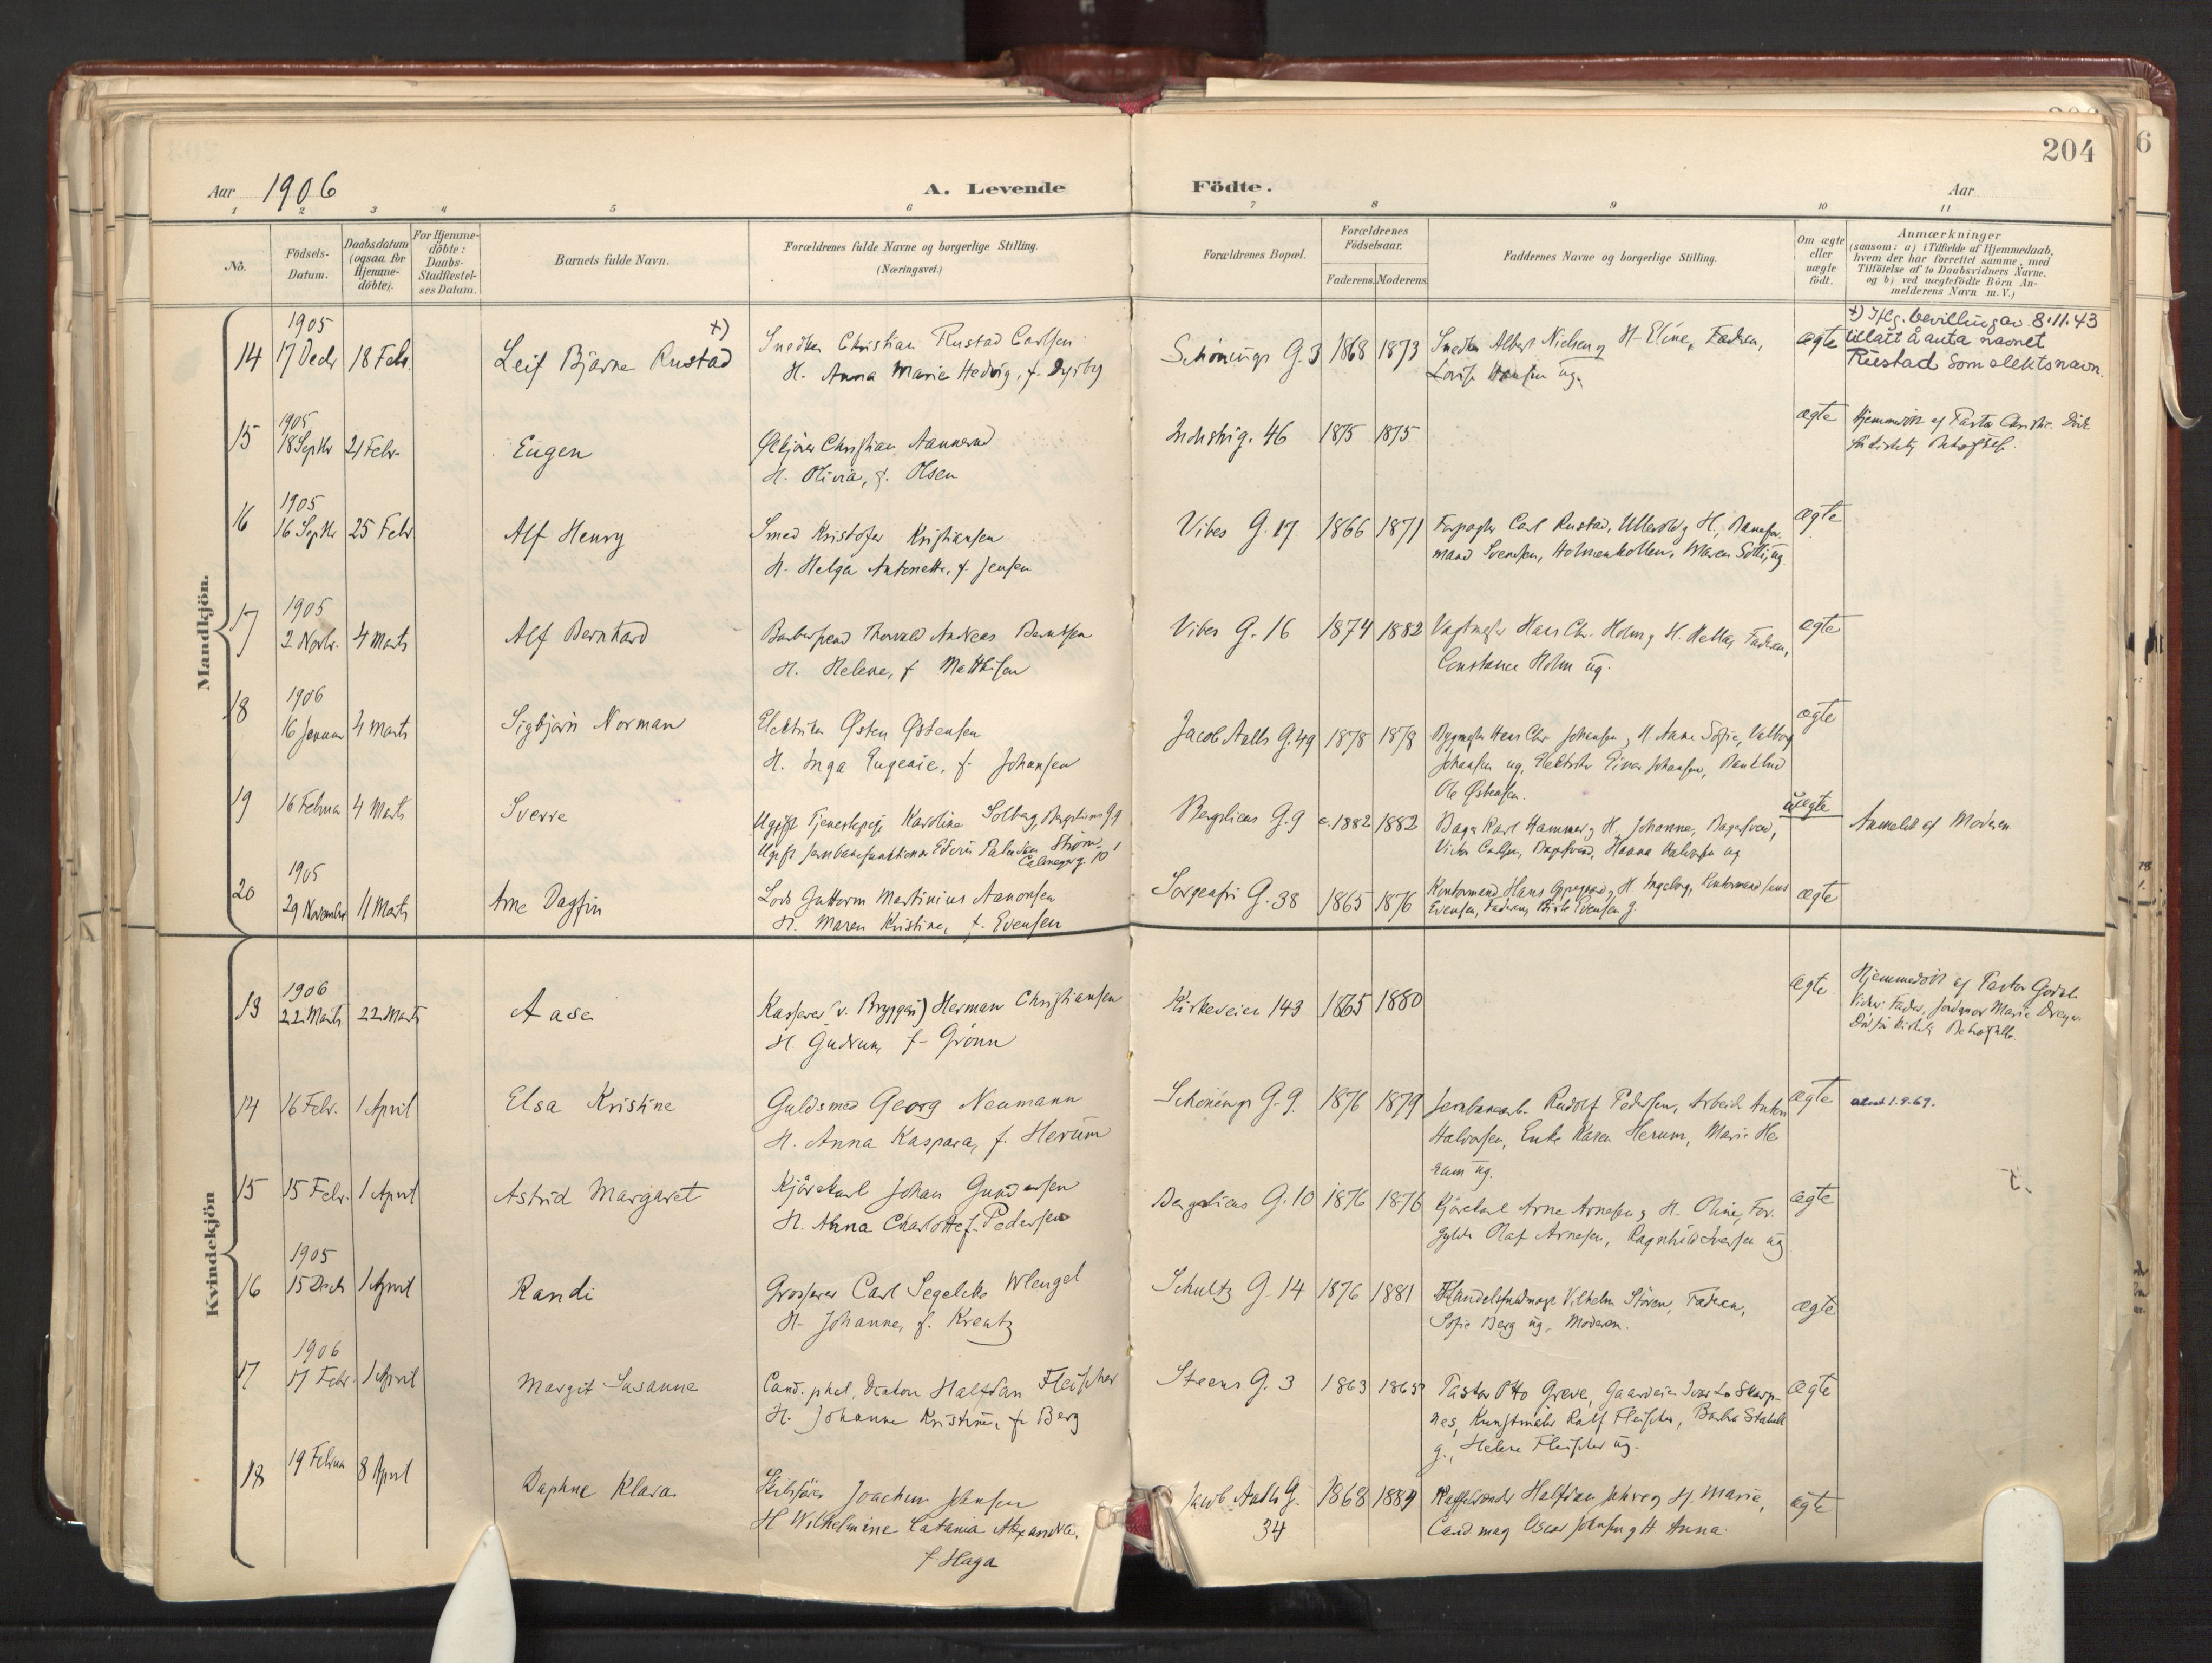 204
Aar 1906 A. Levende Födte. Aar
1 2 3 4 5 6 7 8 9 10 11
No. Födsels-Datum. Daabsdatum (ogsaa for Hjemme-döbte). For Hjemme-döbte: Daabs-Stadfæstel-ses Datum. Barnets fulde Navn. Forældrenes fulde Navne og borgerlige Stilling. (Næringsvei.) Forældrenes Bopæl. Forældrenes Födselsaar. Faderens. Moderens. Faddernes Navne og borgerlige Stilling. Om ægte eller uægte födt. Anmærkninger (sansom: a) i Tilfælde af Hjemmedaab, hvem der har forrettet samme, med Tilföielse af to Daabsvidners Navne, og b) ved uægtefödte Börn An-melderens Navn m. V.)
Mandkjön.
14 1905 17 Decbr 18 Febr. Leif Bjarne Rustad +)
Snedker Christian Rustad Carlsen
H. Anna Marie Hedvig, f. Dyrby
Schönings G. 3 1868 1873
Snedker Albert Nielsen og H. Eline, Faderen,
Lovise Hansen ug.
ægte
+) Iflg. bevilling av 8.11.43
tillatt å anta navnet
Rustad som slektsnavn.
15 1905 18 Septbr 21 Febr. Eugen
Christian Aannerud
H. Olivia, f. Olsen
Industrig. 46 1875 1875
ægte
Hjemmedöbt af Pastor Christie. Döbt
16 1905 16 Septbr 25 Febr. Alf Henry
Smed Kristofer Kristiansen
H. Helga Antonette, f. Jensen
Vibes G. 17 1866 1871
Forpagter Carl Rustad, Ullevold og H.,
mand Svendsen, Holmenkollen, Maren ug.
ægte
17 1905 2 Novbr. 4 Marts Alf Bernhard
Barbersvend Thorvald Andreas Berntsen
H. Helene, f. Matthisen
Vibes G. 16 1874 1882
Vagtmester Hans Chr. Holm og H. Faderen,
Constance Holm ug.
ægte
18 1906 16 Januar 4 Marts Sigbjørn Norman
Elektriker Østen Østensen
H. Inga Eugenie, f. Johansen
Jacob Aalls G. 49 1878 1878
Bygmester Hans Chr Johansen og H. Anne Sofie, Valborg
Johansen ug, Elektriker Einar Johansen,
Ole Østensen.
ægte
19 16 Februar 4 Marts Sverre
Ugift Tjenestepige Karoline Solberg, Bergliens G 9
Ugift Jernbanefunktionær Edvin Strøm,
Calmeyerg. 10
Bergliens G. 9 c. 1882 1882
Bager Karl Hammer og H. Johanne, Bagersvend,
Victor Carlsen, Bagersvend, Hanna Halvorsen ug
uægte
Anmeldt af Moderen
20 1905 29 November 11 Marts Arne Dagfin
Lods Guttorm Martinius Aanonsen
H. Maren Kristine, f. Evensen
Sorgenfri G. 38 1865 1876
Kontormand Hans og H. Ingeborg, Kontormand Jens
Evensen, Faderen, Evensen g.
ægte
Kvindekjön
13 1906 22 Marts 22 Marts Aase
Kasserer (v. Bryggeri) Herman Christiansen
H. Gudrun, f. Grönn
Kirkeveien 143 1865 1880
ægte
Hjemmedöbt af Pastor
Vidner: Fader, Jordmor Marie Dreyer.
14 16 Febr. 1 April Elsa Kristine
Guldsmed Georg Neumann
H. Anna Kaspara, f. Herum
Schönings G. 9. 1876 1879
Jernbanearb. Rudolf Pedersen, Arbeider Anton
Halvorsen, Enke Karen Herum, Marie He
rum ug.
ægte
1.9.69.
15 15 Febr. 1 April Astrid Margaret
Kjörekarl Johan Gundersen
H. Anna Charlotte f. Pedersen
Bergliens G. 10 1876 1876
Kjörekarl Arne Arnesen og H. Oline, For-
gylder Olaf Arnesen, Ragnhild Iversen ug
ægte
16 1905 15 Decbr 1 April Randi
Grosserer Carl Segelcke Wleugel
H. Johanne, f. Kreutz
Schultz G. 14 1876 1881
Handelsfuldmægt Vilhelm Stören, Faderen,
Sofie Berg ug, Moderen.
ægte
17 1906 17 Febr. 1 April Margit Susanne
Cand. phil, Halfdan Fleischer
H. Johanne Kristine, f. Berg
Steens G. 3 1863 1865
Pastor Otto Greve, Gaardeier
nes, Kunstmaler Rolf Fleischer,
g., Helene Fleischer ug.
ægte
18 19 Februar 8 April Daphne Klara
Skibsförer Joachim Johnsen
H Wilhelmine Catania Alexandra,
f Haga
Jacob Aalls G. 34 1868 1884
Halfdan og H. Marie,
Cand. mag Oscar Johnsen og H. Anna.
ægte